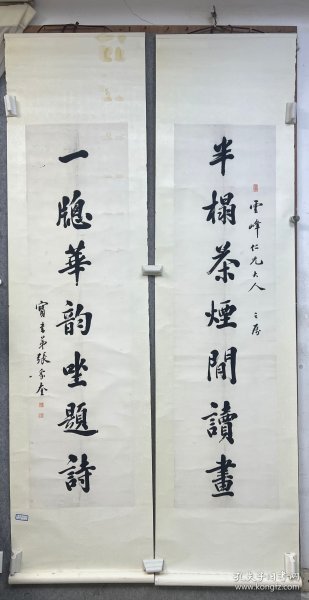 半榻茶煙閒讀畫
雲峰仁兄大人
之存
一牕華韵唑題詩
弟張
孔夫子旧书网